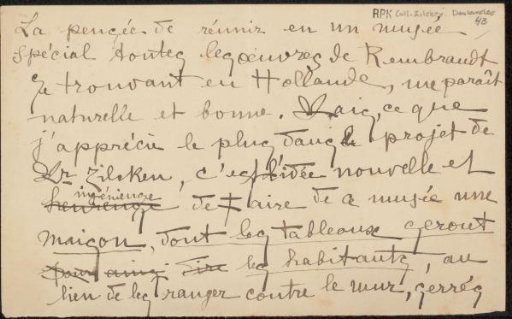 RPK Coll. Zilcken
43
La pensée de réunir en un musée
spécial toutes les œuvres de Rembrandt
se trouvant en Hollande, me paraît
naturelle et bonne. Mais, ce que
j'apprécie le plus dans le projet de
Mr Zilcken, c'est l'idée nouvelle et
ingénieuse
heureuse de faire de ce musée une
maison, dont les tableaux seront
pour ainsi dire les habitants, au
lieu de les ranger contre le mur, serrés